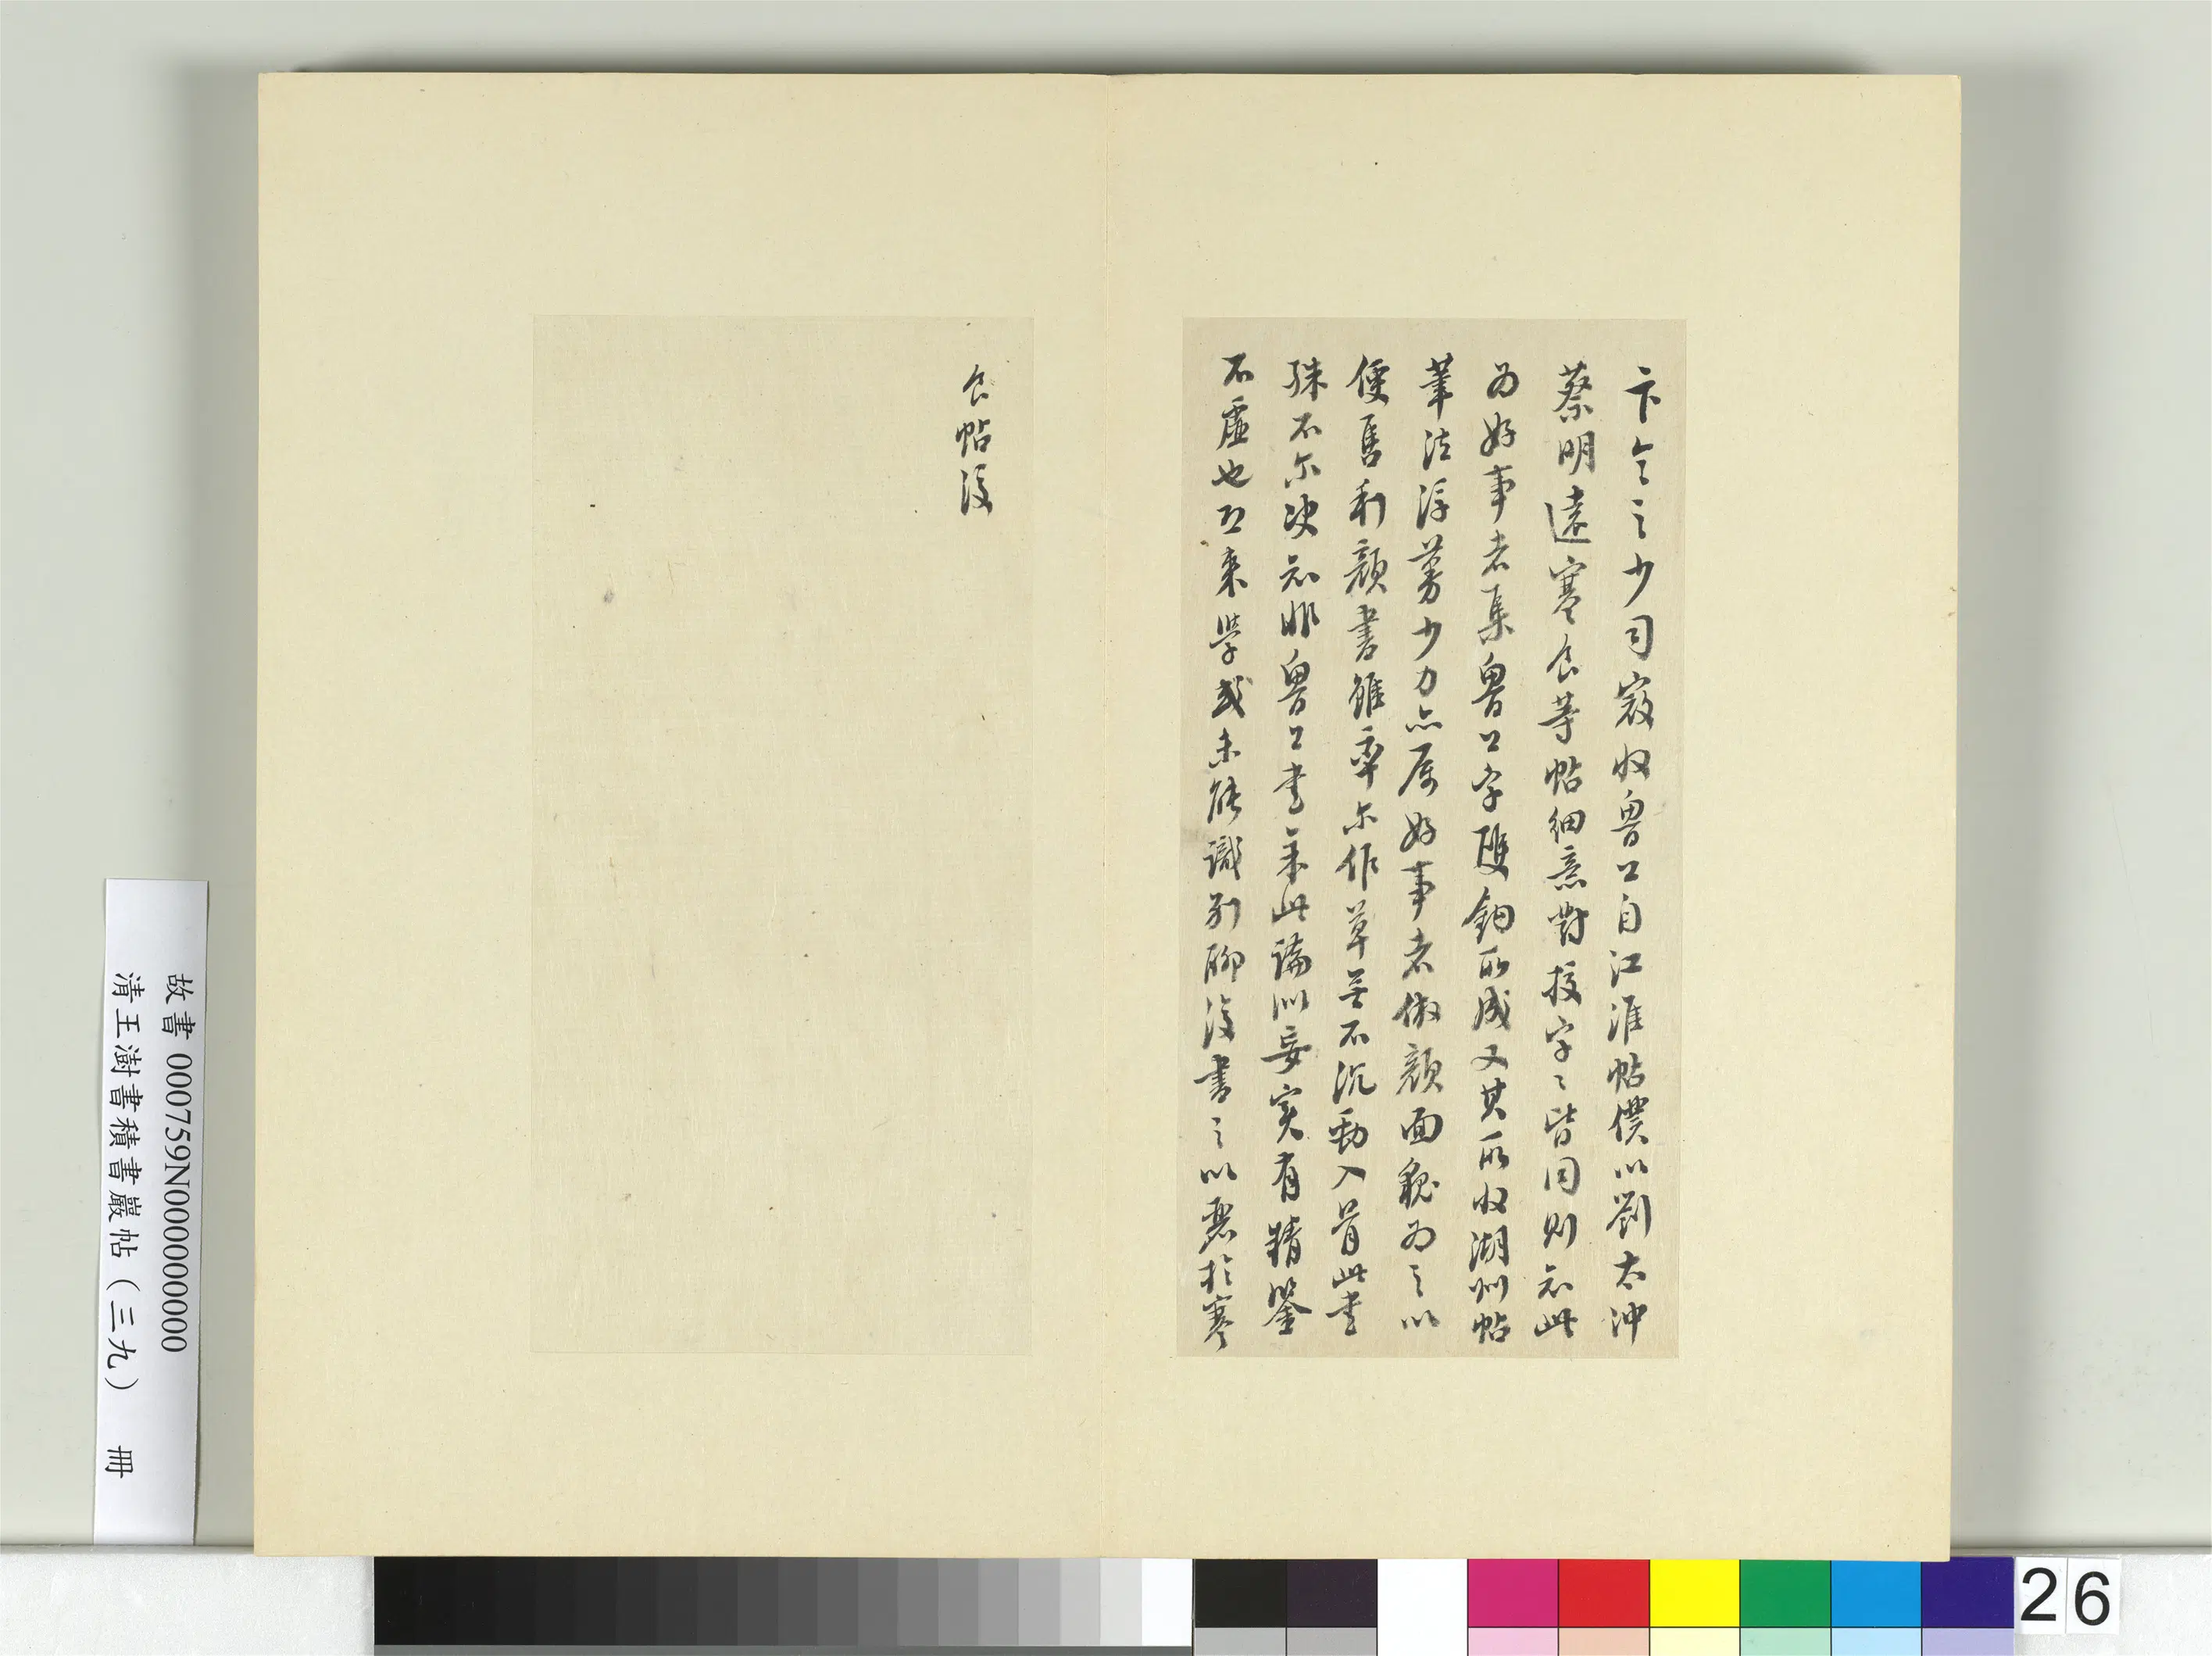 卞令之少司寇收魯公自江淮帖僕以劉太沖
蔡明遠寒食等帖細意對挍字〻皆同則知此
為好事者集魯公字雙鉤所成又其所收湖州帖
筆法浮蒭少力亦屬好事者倣顏面貌為之以
便售利顏書雖率尔作草無不沉勁入骨此書
殊不尔決知非魯公書年此論似妄實有精鑒
不虛也以來學或未能識別聊復書之以惎於寒
食帖後
故書 000759N000000000
清王澍書積書巖帖（三九） 冊
26